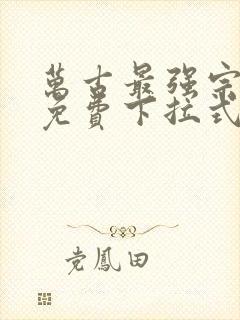 萬古最强宗
免費下拉式
党鳳田